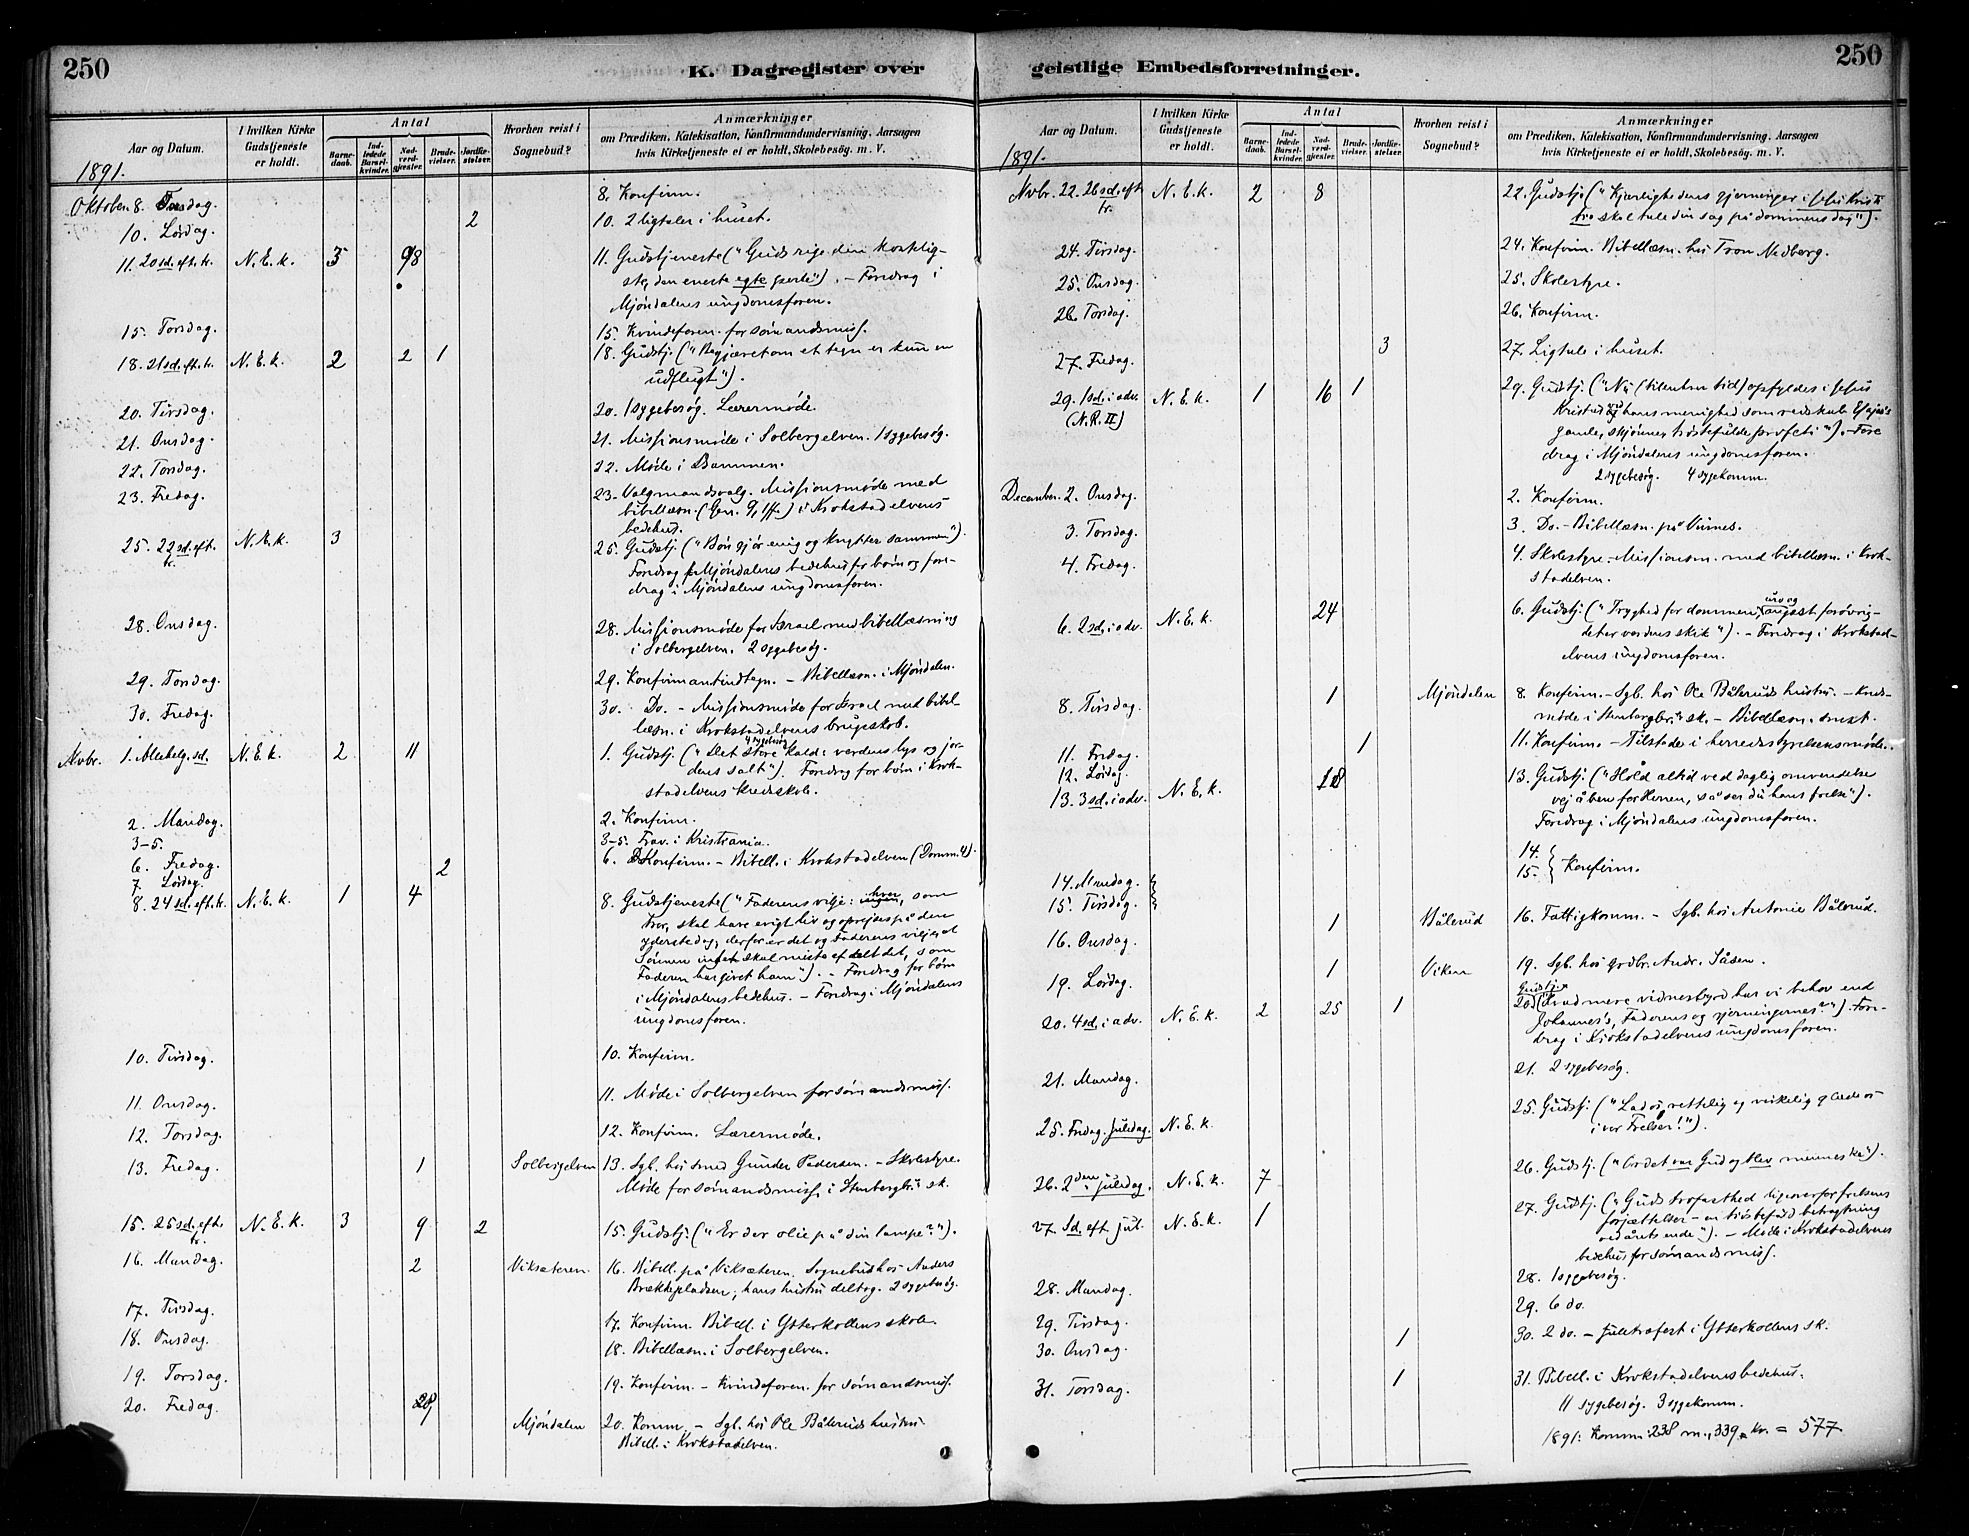 250
K. Dagregister over
Aar og Datum.
I hvilken Kirke Gudstjeneste er holdt.
Antal
Barne-daab.
Ind-ledede Barsel-kvinder.
Nad-verd-gjester.
Brude-vielser.
Jordfæ-stelser.
Hvorhen reist i Sognebud?
Anmærkninger
om Prædiken, Katekisation, Konfirmandundervisning, Aarsagen
hvis Kirketjeneste ei er holdt, Skolebesög. m. V.
1891.
Oktober 8. Torsdag. 8. Konfirm.
10. Lørdag. 2 10. 2 ligtaler i huset.
11. 20 sd. eft. tr. N. E. k. 5 98 11. Gudstjeneste ("Guds rige den kostelig-
ste, den eneste egte perle"). - Foredrag i
Mjöndalens ungdomsforen.
15. Torsdag. 15. Kvindeforen. for sömandsmiss.
18. 21 sd. eft. tr. N. E. k. 2 2 1 18. Gudstj. ("Begjæret om et tegn er kun en
udflugt").
20. Tirsdag. 20. 1 sygebesøg. Lærermöde.
21. Onsdag. 21. Missionsmöde i Solbergelven. 1 sygebesög.
22. Torsdag. 22. Möde i Drammen.
23. Fredag. 23. Valgmandsvalg. Missionsmöde med
bibellæsn. (Gen. 9, 1ff.) i Krokstadelvens
bedehus.
25. 22 sd. eft. tr. N. E. k. 3 25. Gudstj. ("Bön gjör enig og knytter sammen").
Foredrag i Mjöndalens bedehus for börn og fore-
drag i Mjöndalens ungdomsforen.
28. Onsdag. 28. Missionsmöde for Israel med bibellæsning
i Solbergelven. 2 sygebesög.
29. Torsdag. 29. Konfirmantindtegn. - Bibellæsn. i Mjöndalen.
30. Fredag. 30. Do. - Missionsmöde for Israel med bibel-
læsn. i Krokstadelvens brugsskole.
4 sygebesög
Nvbr. 1. Allehelg. sd. N. E. k. 2 11 1. Gudstj. ("Det store kald: verdens lys og jor-
dens salt"). Foredrag for börn i Krok-
stadelvens kredsskole.
2. Mandag. 2. Konfirm.
3-5. 3-5. Frav. i Kristiania.
6. Fredag. 6. Konfirm. - Bibell. i Krokstadelven (Domm. 4).
7. Lördag. 2
8. 24 sd. eft. tr. N. E. k. 1 4 8. Gudstjeneste ("Faderens vilje: hver, som
tror, skal have evigt liv og oprejses på den
yderste dag, derfor er det og Faderens vilje, at
Sönnen intet skal miste af alt det, som
Faderen har givet ham"). - Foredrag for börn
i Mjöndalens bedehus. - Foredrag i Mjöndalens
ungdomsforen.
10. Tirsdag. 10. Konfirm.
11. Onsdag. 11. Möde i Solbergelven for sömandsmiss.
12. Torsdag. 12. Konfirm. Lærermöde.
13. Fredag. 1 Solbergelven 13. Sgb. hos smed Gunder Pedersen. - Skolestyre.
Möde for sömandsmiss. i Stenbergbr.s sk.
15. 25 sd. eft. tr. N. E. k. 3 9 2 15. Gudstj. ("Er der olie på din lampe?").
16. Mandag. 2 Viksæteren. 16. Bibell. på Viksæteren. Sognebud hos Anders
Brækkepladsen; hans hustru deltog. 2 sygebesög.
17. Tirsdag. 17. Konfirm. Bibell. i Ytterkollens skole.
18. Onsdag. 18. Bibellæsn. i Solbergelven.
19. Torsdag. 19. Konfirm. - Kvindeforen. for sömandsmiss.
20. Fredag. Mjöndalen 20. Komm. - Sgb. hos Ole Båleruds hustru
Bibell. i Krokstadelven.
geistlige Embedsforretninger.
250
Aar og Datum.
I hvilken Kirke Gudstjeneste er holdt.
Antal
Barne-daab.
Ind-ledede Barsel-kvinder.
Nad-verd-gjester.
Brude-vielser.
Jordfæ-stelser.
Hvorhen reist i Sognebud?
Anmærkninger
om Prædiken, Katekisation, Konfirmandundervisning, Aarsagen
hvis Kirketjeneste ei er holdt, Skolebesög. m. V.
1891.
Nvbr. 22. 26 sd. eft. tr. N. E. k. 2 8 22. Gudstj. ("Kjærlighedens gjerninger i Jesu Kristi
tro skal tale din sag på dommens dag").
24. Tirsdag. 24. Konfirm. Bibellæsn. hos Tron Nedberg.
25. Onsdag. 25. Skolestyre.
26. Torsdag. 26. Konfirm.
27. Fredag. 3 27. Ligtale i huset.
29. 1 sd. i adv. N. E. k. 1 16 1 29. Gudstj. ("Nu (til enhver tid) opfyldes i Jesus
(N. R. II) Kristus ved hans menighed som redskab Esajas's
gamle, skjönne, tröstefulde profeti"). - Fore
drag i Mjöndalens ungdomsforen.
2 sygebesög. 4 sygekomm.
December. 2. Onsdag. 2. Konfirm.
3. Torsdag. 3. Do. - Bibellæsn. på Vinnes.
4. Fredag. 4. Skolestyre. Missionsm. med bibellæsn. i Krok-
stadelven.
6. 2 sd. i adv. N. E. k. 24 6. Gudstj. ("Tryghed for dommen, uro og angst forövrig-
det er verdens skik"). - Foredrag i Krokstad-
elvens ungdomsforen.
8. Tirsdag. 1 Mjöndalen 8. Konfirm. - Sgb. hos Ole Båleruds hustru. - Kreds-
möde i Stenbergbr.s sk. - Bibellæsn. smst.
11. Fredag. 1 11. Konfirm. - Tilstede i herredsstyrelsesmöde.
12. Lördag.
13. 3 sd. i adv. N. E. k. 18 13. Gudstj. ("Hold altid ved daglig omvendelse
vej åben for Herren, så ser du hans frelse").
Foredrag i Mjöndalens ungdomsforen.
14. Mandag. 14.
15. Tirsdag. 15. Konfirm.
16. Onsdag. 1 Bålerud 16. Fattigkomm. - Sgb. hos Antonie Bålerud.
19. Lördag. 1 Viken 19. Sgb. hos grdbr. Andr. Såsen.
20. 4 sd. i adv. N. E. k. 2 25 1 20. Gudstj. ("Hvad mere vidnesbyrd har vi behov end
Johannes's, Faderens og gjerningernes?"). Fore-
drag i Krokstadelvens ungdomsforen.
21. Mandag. 21. 2 sygebesög.
25. Fredag. juledag. N. E. k. 25. Gudstj. ("Lad os rettelig og virkelig glæde os
i vor Frelser!").
26. 2den juledag. N. E. k. 7 26. Gudstj. ("Ordet var Gud og blev menneske").
27. Sd. eft. jul. N. E. k. 1 27. Gudstj. ("Guds trofasthed ligeoverfor frelsens
forjættelser - en tröstefuld betragtning
ved årets ende"). - Möde i Krokstadelvens
bedehus for sömandsmiss.
28. Mandag. 28. 1 sygebesög.
29. Tirsdag. 29. 6 do.
30. Onsdag. 1 30. 2 do. - juletrofest i Ytterkollens sk.
31. Torsdag. 1 31. Bibell. i Krokstadelvens bedehus.
11 sygebesög. 3 sygekomm.
1891: Komm: 238 m., 339 kv. = 577